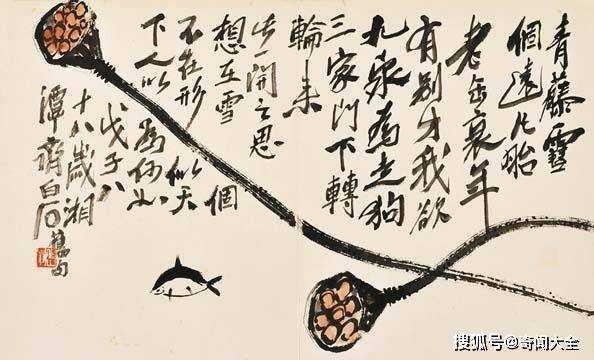 青藤雪
個遠凡胎
老缶衰年
有別才我欲
九泉為走狗
三家門下轉
輪來
此開之思
想互雪個
不在形似天
下人以為何如
戊子八
十八歲湘
潭齊白石舊句
搜狐号@奇闻大全